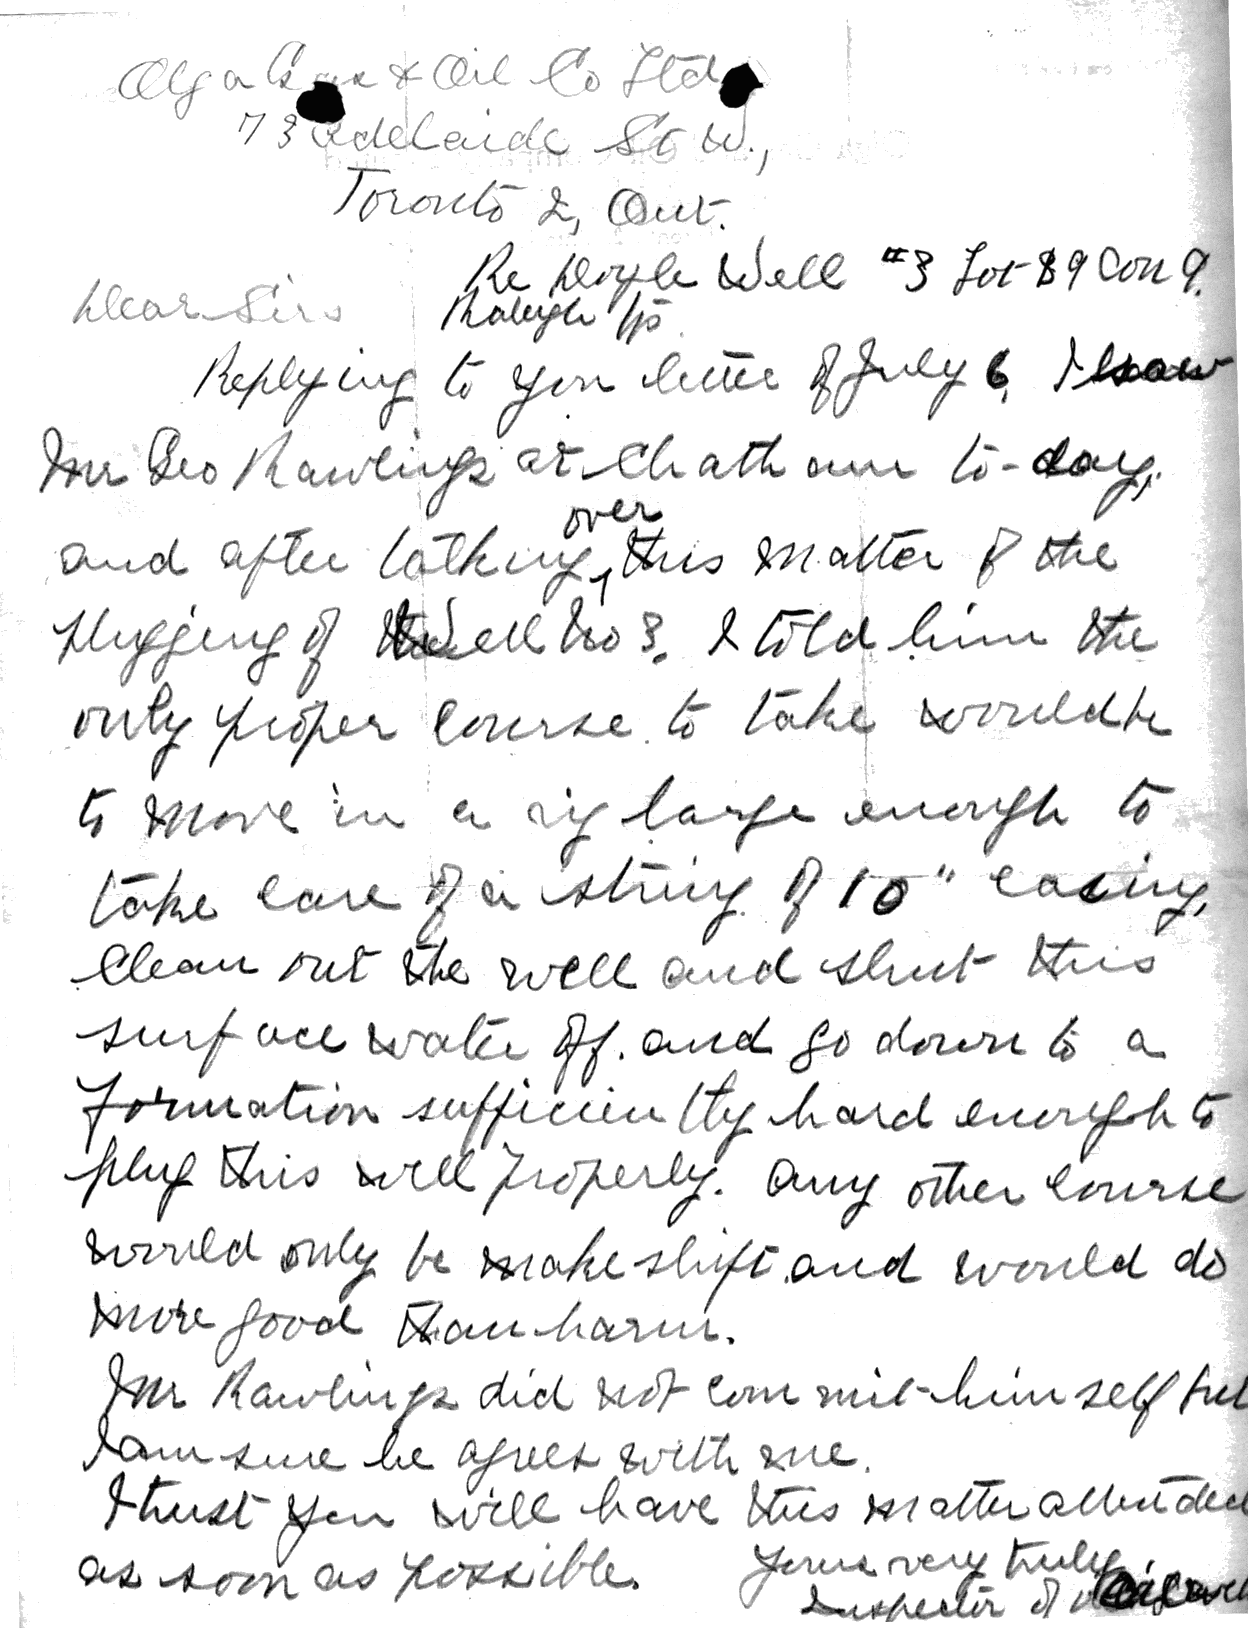 Olga Gas & Oil Co Ltd
73 Adelaide St W.,
Toronto 2, Ont.
Re Doyle Well #3 Lot 89 Con 9.
Dear Sirs Raleigh Tp
Replying to your letter of July 6, I saw
Mr Geo Rawlings at Chatham to-day,
and after talking over this matter of the
plugging of Well No 3. I told him the
only proper course to take would be
to move in a rig large enough to
take care of a string of 10" casing,
clean out the well and shut this
surface water off. and go down to a
formation sufficiently hard enough to
plug this well properly. Any other course
would only be makeshift and would do
more good than harm.
Mr Rawlings did not commit himself but
I am sure he agrees with me.
I trust you will have this matter attended
as soon as possible. Yours very truly
Inspector of